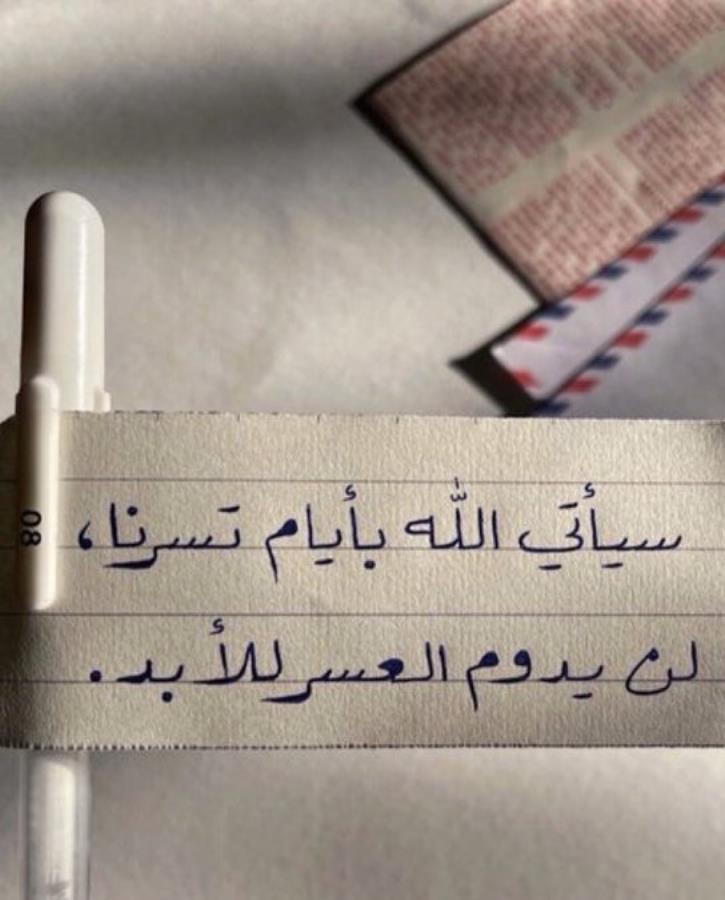 سيأتي الله بأيام تسرنا،
لن يدوم العسر للأبد.
08